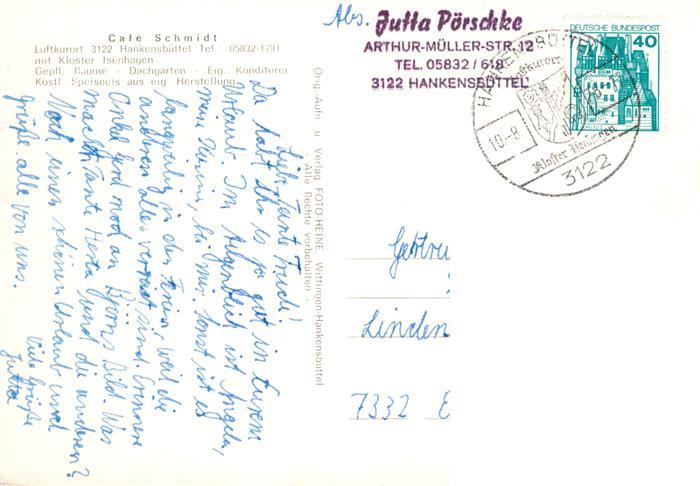 Café Schmidt
Luftkurort 3122 Hankensbüttel Tel.: 05832-1791
mit Kloster Isenhagen
Gepfl. Räume - Dachgarten - Eig. Konditorei
Köstl. Speiseeis aus eig. Herstellung
Abs.
Jutta Pörschke
ARTHUR-MÜLLER-STR. 12
TEL. 05832 / 618
3122 HANKENSBÜTTEL
DEUTSCHE BUNDESPOST
40
HANKENSBÜTTEL
Luftkurort
10.-8.
Kloster Isenhagen
3122
Orig.-Aufn. u. Verlag FOTO-HEINE, Wittingen-Hankensbüttel
- Alle Rechte vorbehalten -
Lieb. Tante Trudi!
Du habt Ihr es so gut in Eurem
Urlaub. Im Augenblick ist Angela,
meine Kleine, bei mir. Sonst ist es
langweilig in den Ferien, weil die
anderen alle verreist sind. Erinnere
Onkel Jord noch an Björns Bild. Was
macht Tante Herta und die anderen?
Noch einen schönen Urlaub und
grüße alle von uns.
Viele Grüße
Jutta
Gertru
Linden
7332 E